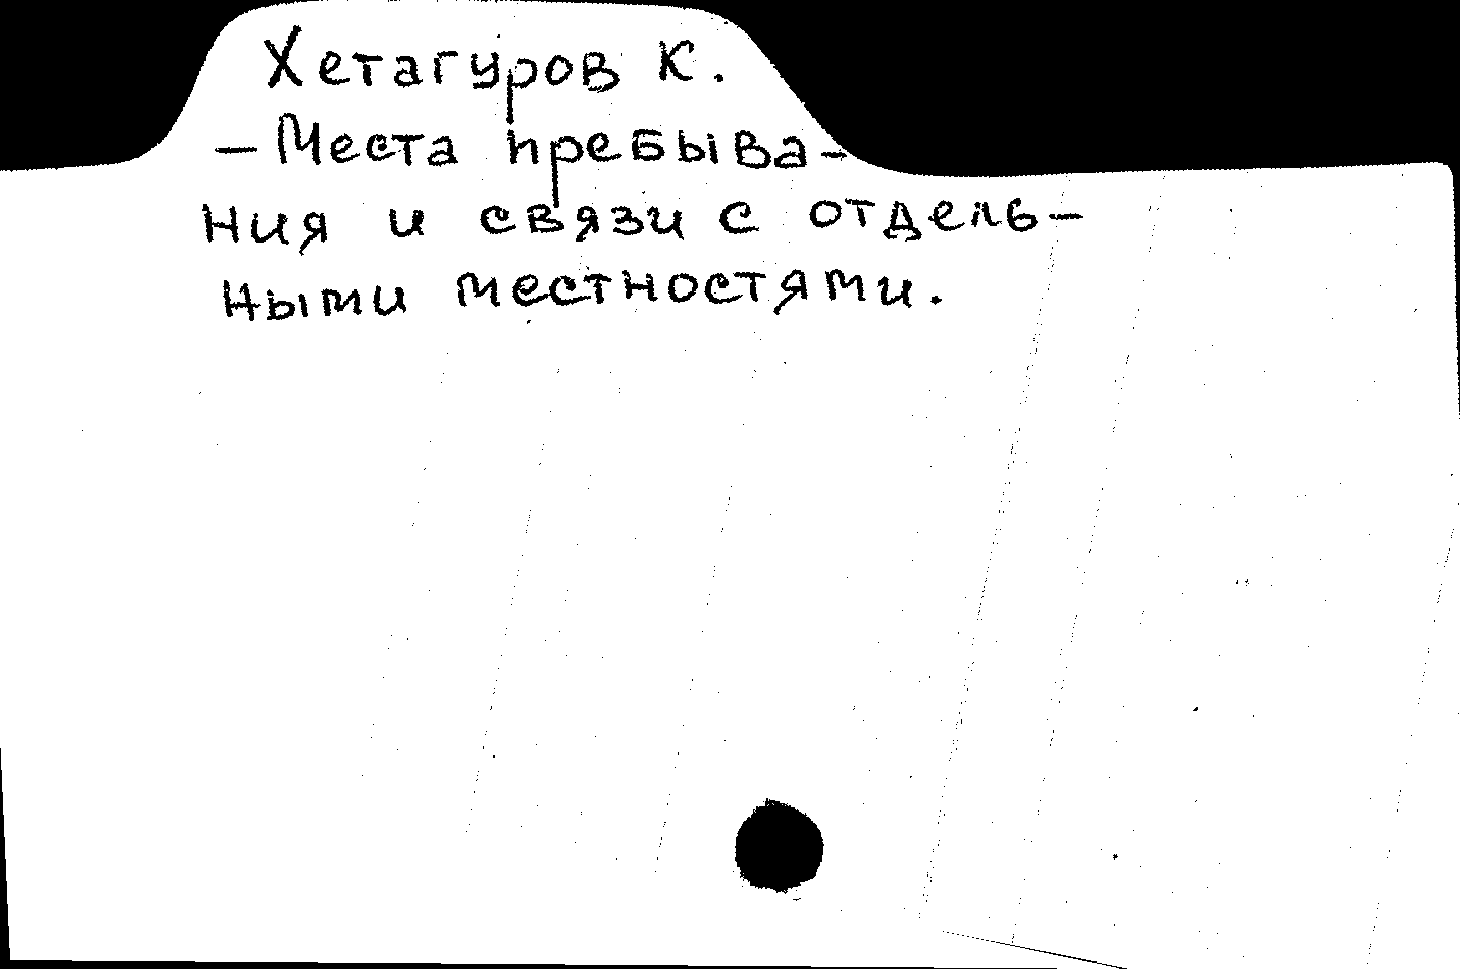 Хетагуров К.
– Места пребыва-
ния и связи с отдель-
ными местностями.